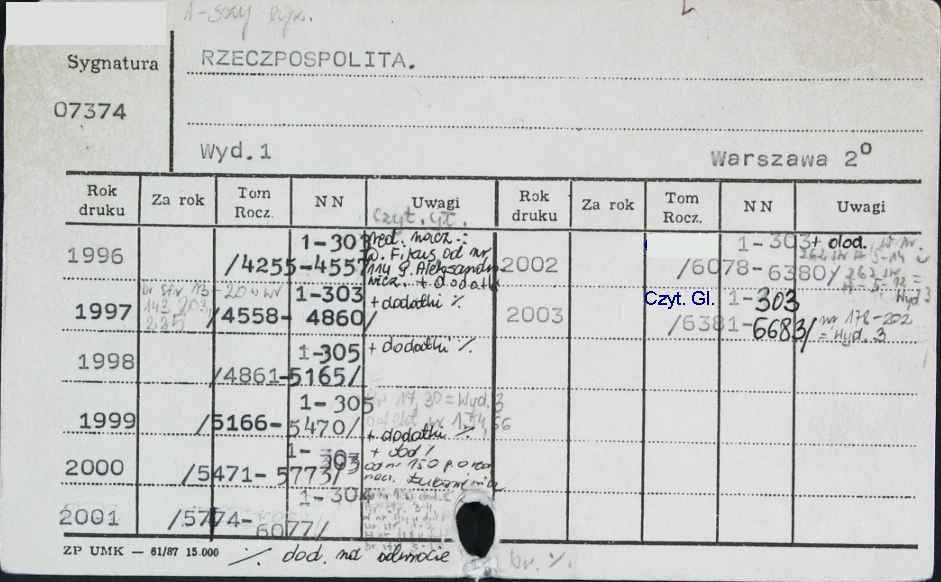 1-szy egz.
Sygnatura
07374
RZECZPOSPOLITA.
Wyd.1
Warszawa 2°
Rok druku Za rok Tom Rocz. NN Uwagi Rok druku Za rok Tom Rocz. NN Uwagi
Czyt. Gł.
1996 /4255-4557 1-303 red. nacz.:
P. Fijas od nr
114 g. Aleksandro
wicz. + dodatki
1997 /4558- 4860/ 1-303 + dodatki ·/.
1998 /4861-5165/ 1-305 + dodatki ·/.
1999 /5166- 5470/ 1-305 nr 17, 30 = Wyd. 3
+ dodatki ·/.
2000 /5471- 5773/ 1-303 + dod /
od nr 150 p.o. red
nacz. Łukasiewicz
2001 /5774- 6077/ 1-304
2002 /6078-6380/ 1-303 + dod.
Czyt. Gl.
2003 /6381-6683/ 1-303 nr 178-202
= Wyd. 3
ZP UMK — 61/87 15.000
·/. dod. na odwrocie